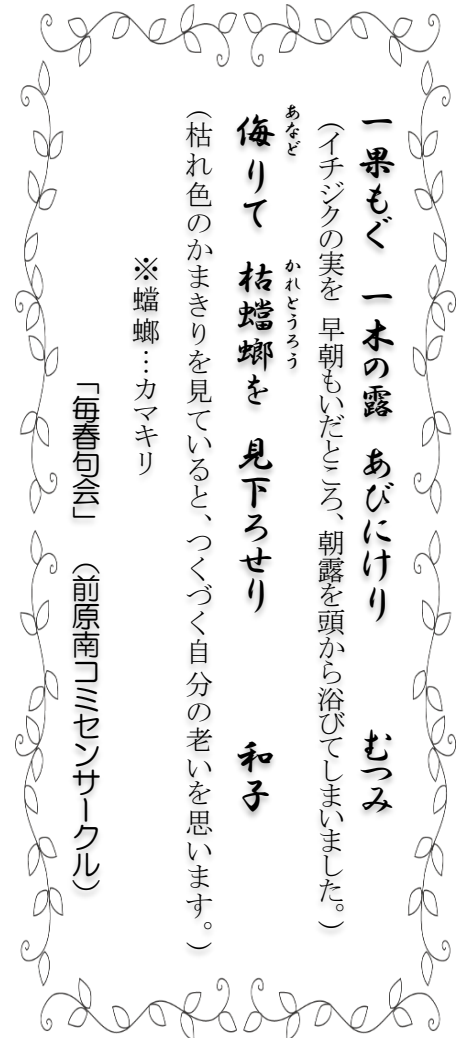 一果もぐ　一木の露　あびにけり　むつみ
（イチジクの実を　早朝もいだところ、朝露を頭から浴びてしまいました。）
あなど　かれとうろう
侮りて　枯蟷螂を　見下ろせり　和子
（枯れ色のかまきりを見ていると、つくづく自分の老いを思います。）
※蟷螂…カマキリ
「毎春句会」　（前原南コミセンサークル）